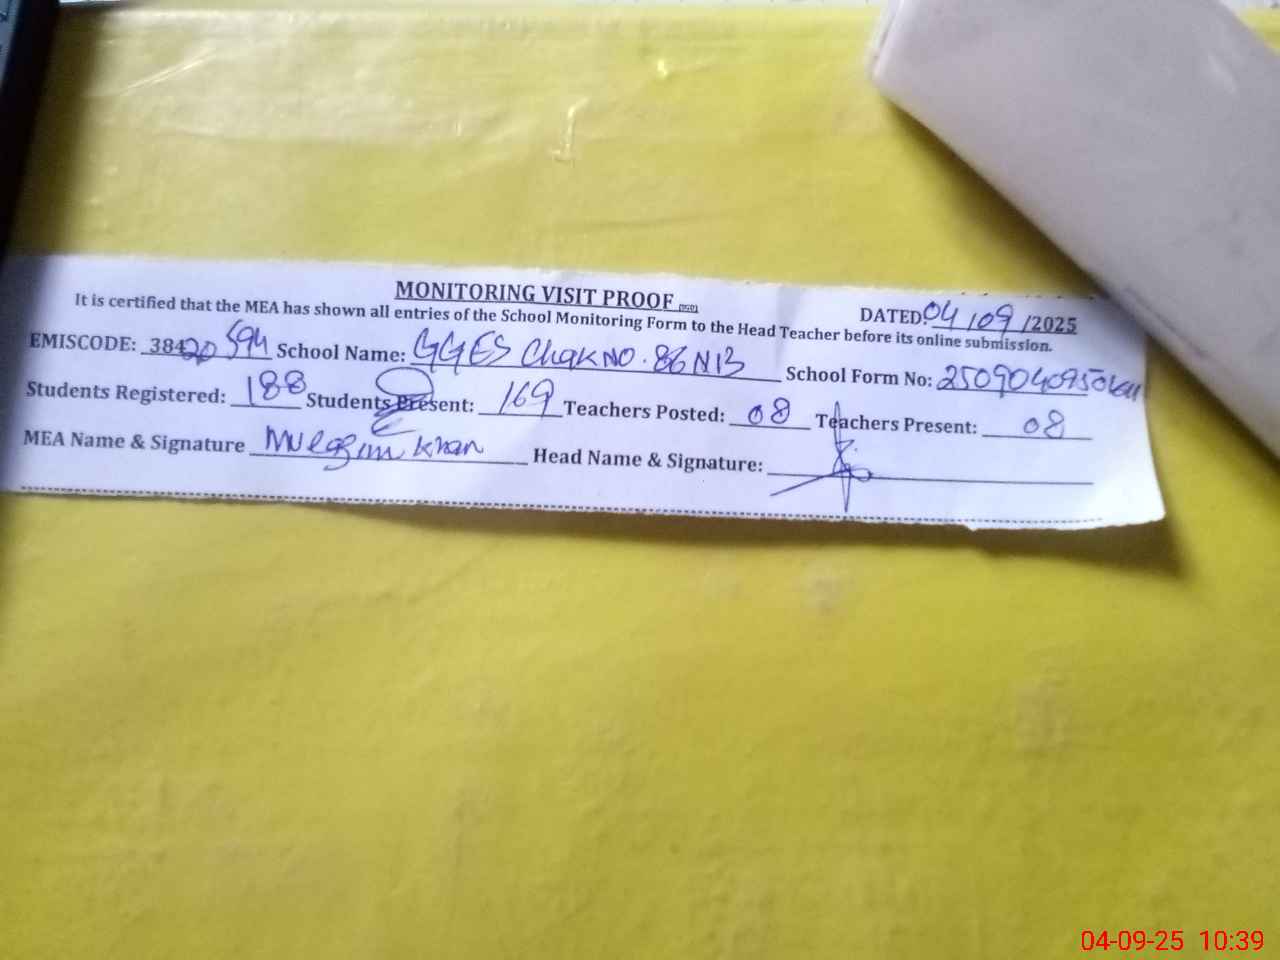 MONITORING VISIT PROOF
DATED: 04/09/2025
It is certified that the MEA has shown all entries of the School Monitoring Form to the Head Teacher before its online submission.
EMISCODE: 38420594 School Name: GGES Chak NO. 86 NB School Form No:
Students Registered: 188 Students Present: 169 Teachers Posted: 08 Teachers Present: 08
MEA Name & Signature Mulazim Khan Head Name & Signature:
04-09-25 10:39